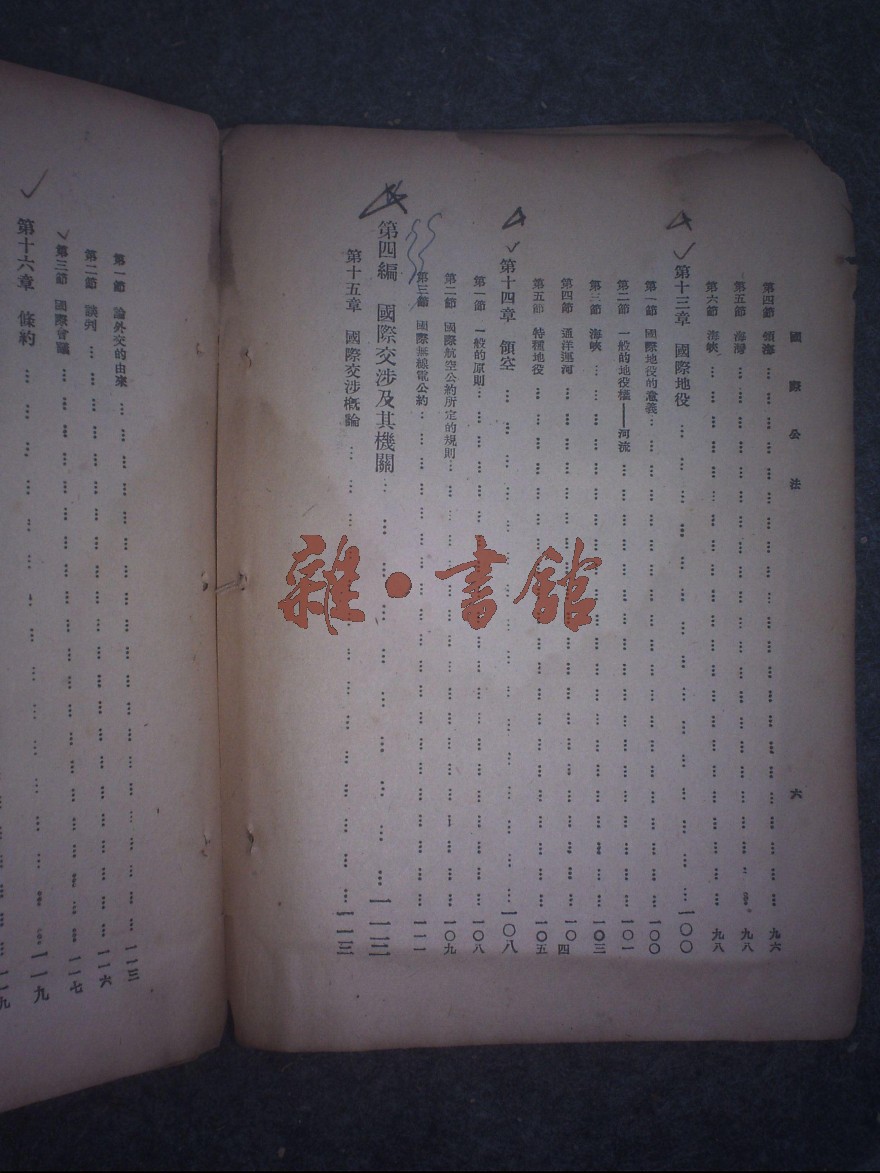 國際公法
六
第四節 領海 九六
第五節 海灣 九八
第六節 海峽 九八
第十三章 國際地役 一〇〇
第一節 國際地役的意義 一〇〇
第二節 一般的地役權——河流 一〇一
第三節 海峽 一〇三
第四節 通洋運河 一〇四
第五節 特種地役 一〇五
第十四章 領空 一〇八
第一節 一般的原則 一〇八
第二節 國際航空公約所定的規則 一〇九
第三節 國際無線電公約 一一一
第四編 國際交涉及其機關 一一三
第十五章 國際交涉概論 一一三
第一節 論外交的由來 一一三
第二節 談判 一一六
第三節 國際會議 一一七
第十六章 條約 一一九
一九
雜·書館